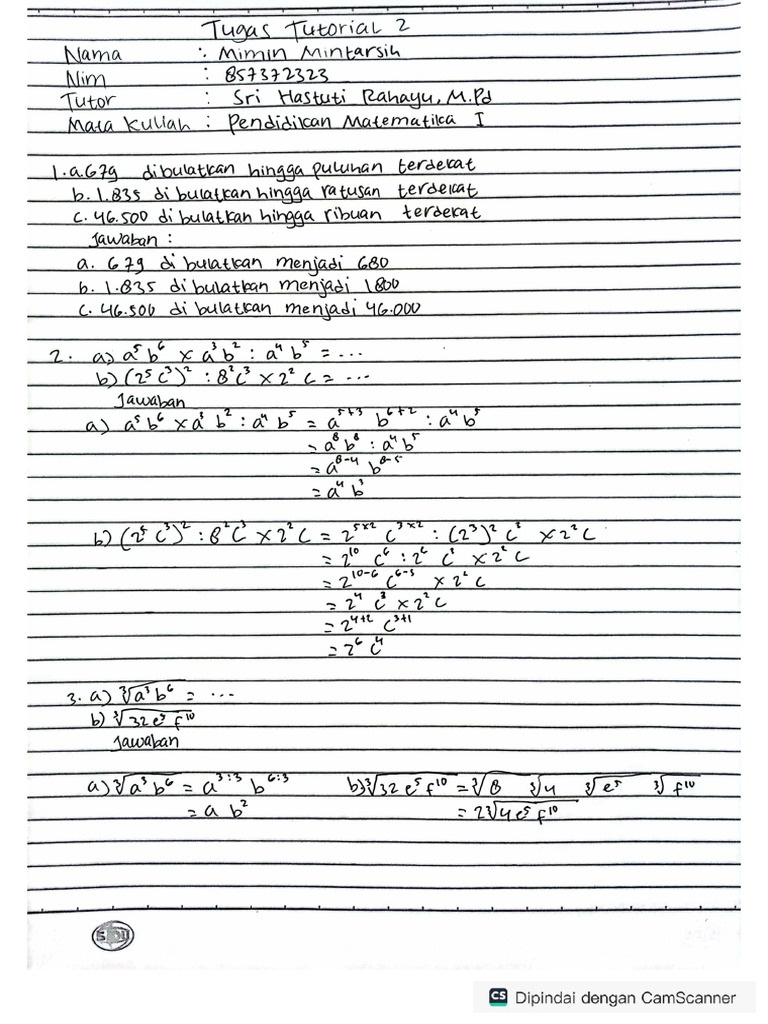 Tugas Tutorial 2
Nama : Mimin Mintarsih
Nim : 857372323
Tutor : Sri Hastuti Rahayu, M.Pd
Mata Kuliah : Pendidikan Matematika I
1. a. 679 dibulatkan hingga puluhan terdekat
b. 1.835 di bulatkan hingga ratusan terdekat
c. 46.500 di bulatkan hingga ribuan terdekat
Jawaban :
a. 679 di bulatkan menjadi 680
b. 1.835 di bulatkan menjadi 1800
c. 46.500 di bulatkan menjadi 46.000
2. a) a⁵ b⁶ x a³ b² : a⁴ b⁵ = ...
b) (2⁵ c³)² : 8² c³ x 2² c = ...
Jawaban
a) a⁵ b⁶ x a³ b² : a⁴ b⁵ = a⁵⁺³ b⁶⁺² : a⁴ b⁵
= a⁸ b⁸ : a⁴ b⁵
= a⁸⁻⁴ b⁸⁻⁵
= a⁴ b³
b) (2⁵ c³)² : 8² c³ x 2² c = 2⁵ˣ² c³ˣ² : (2³)² c³ x 2² c
= 2¹⁰ c⁶ : 2⁶ c³ x 2² c
= 2¹⁰⁻⁶ c⁶⁻³ x 2² c
= 2⁴ c³ x 2² c
= 2⁴⁺² c³⁺¹
= 2⁶ c⁴
3. a) ∛a³ b⁶ = ...
b) ∛32 e⁵ f¹⁰
Jawaban
a) ∛a³ b⁶ = a³:³ b⁶:³ b) ∛32 e⁵ f¹⁰ = ∛8 ∛4 ∛e⁵ ∛f¹⁰
= a b² = 2∛4e⁵ f¹⁰
SIDU
CS Dipindai dengan CamScanner